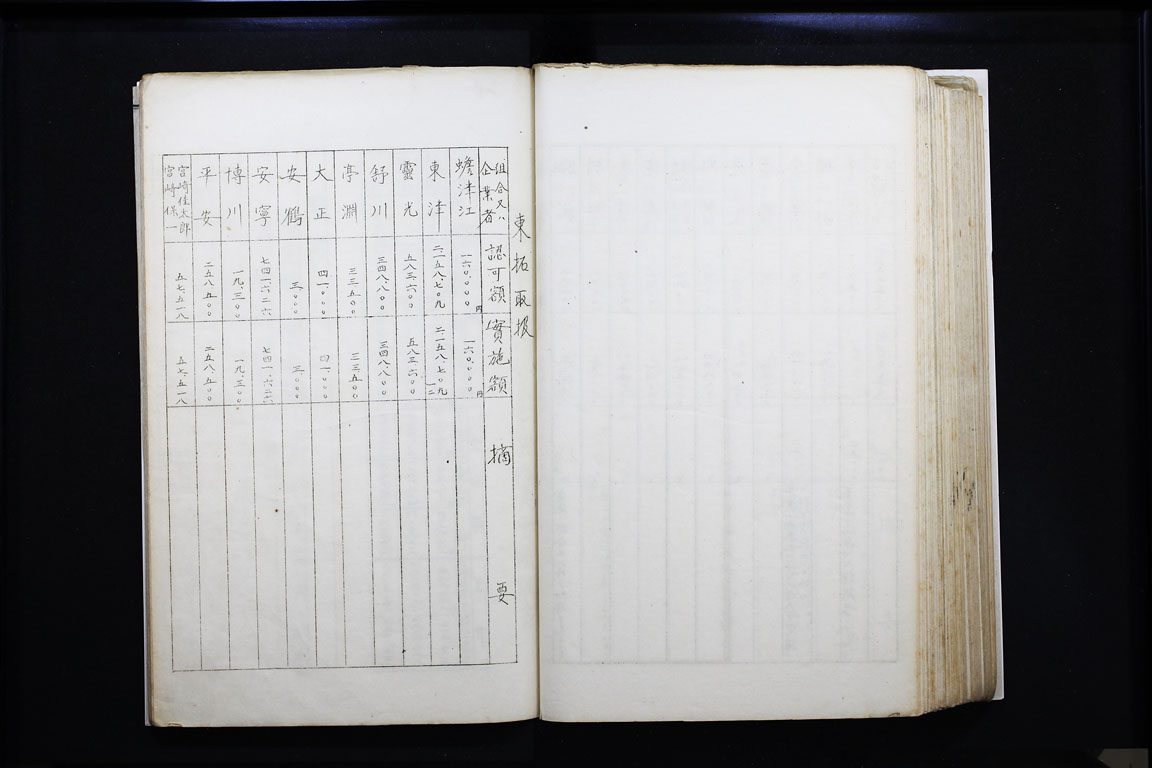 東拓取扱
組合又ハ企業者 認可額 實施額 摘要
蟾津江 一六〇、〇〇〇円 一六〇、〇〇〇円
東津 二、一五八、七〇九 二、一五八、七〇九
靈光 五八三、六〇〇 五八三、六〇〇
舒川 三四八、八〇〇 三四八、八〇〇
亭淵 三三、五〇〇 三三、五〇〇
大正 四一、〇〇〇 四一、〇〇〇
安鶴 三、〇〇〇 三、〇〇〇
安寧 七四一、六二六 七四一、六二六
博川 一九、三〇〇 一九、三〇〇
平安 二五八、五〇〇 二五八、五〇〇
宮崎佳太郎
宮崎保一 五七、五一八 五七、五一八